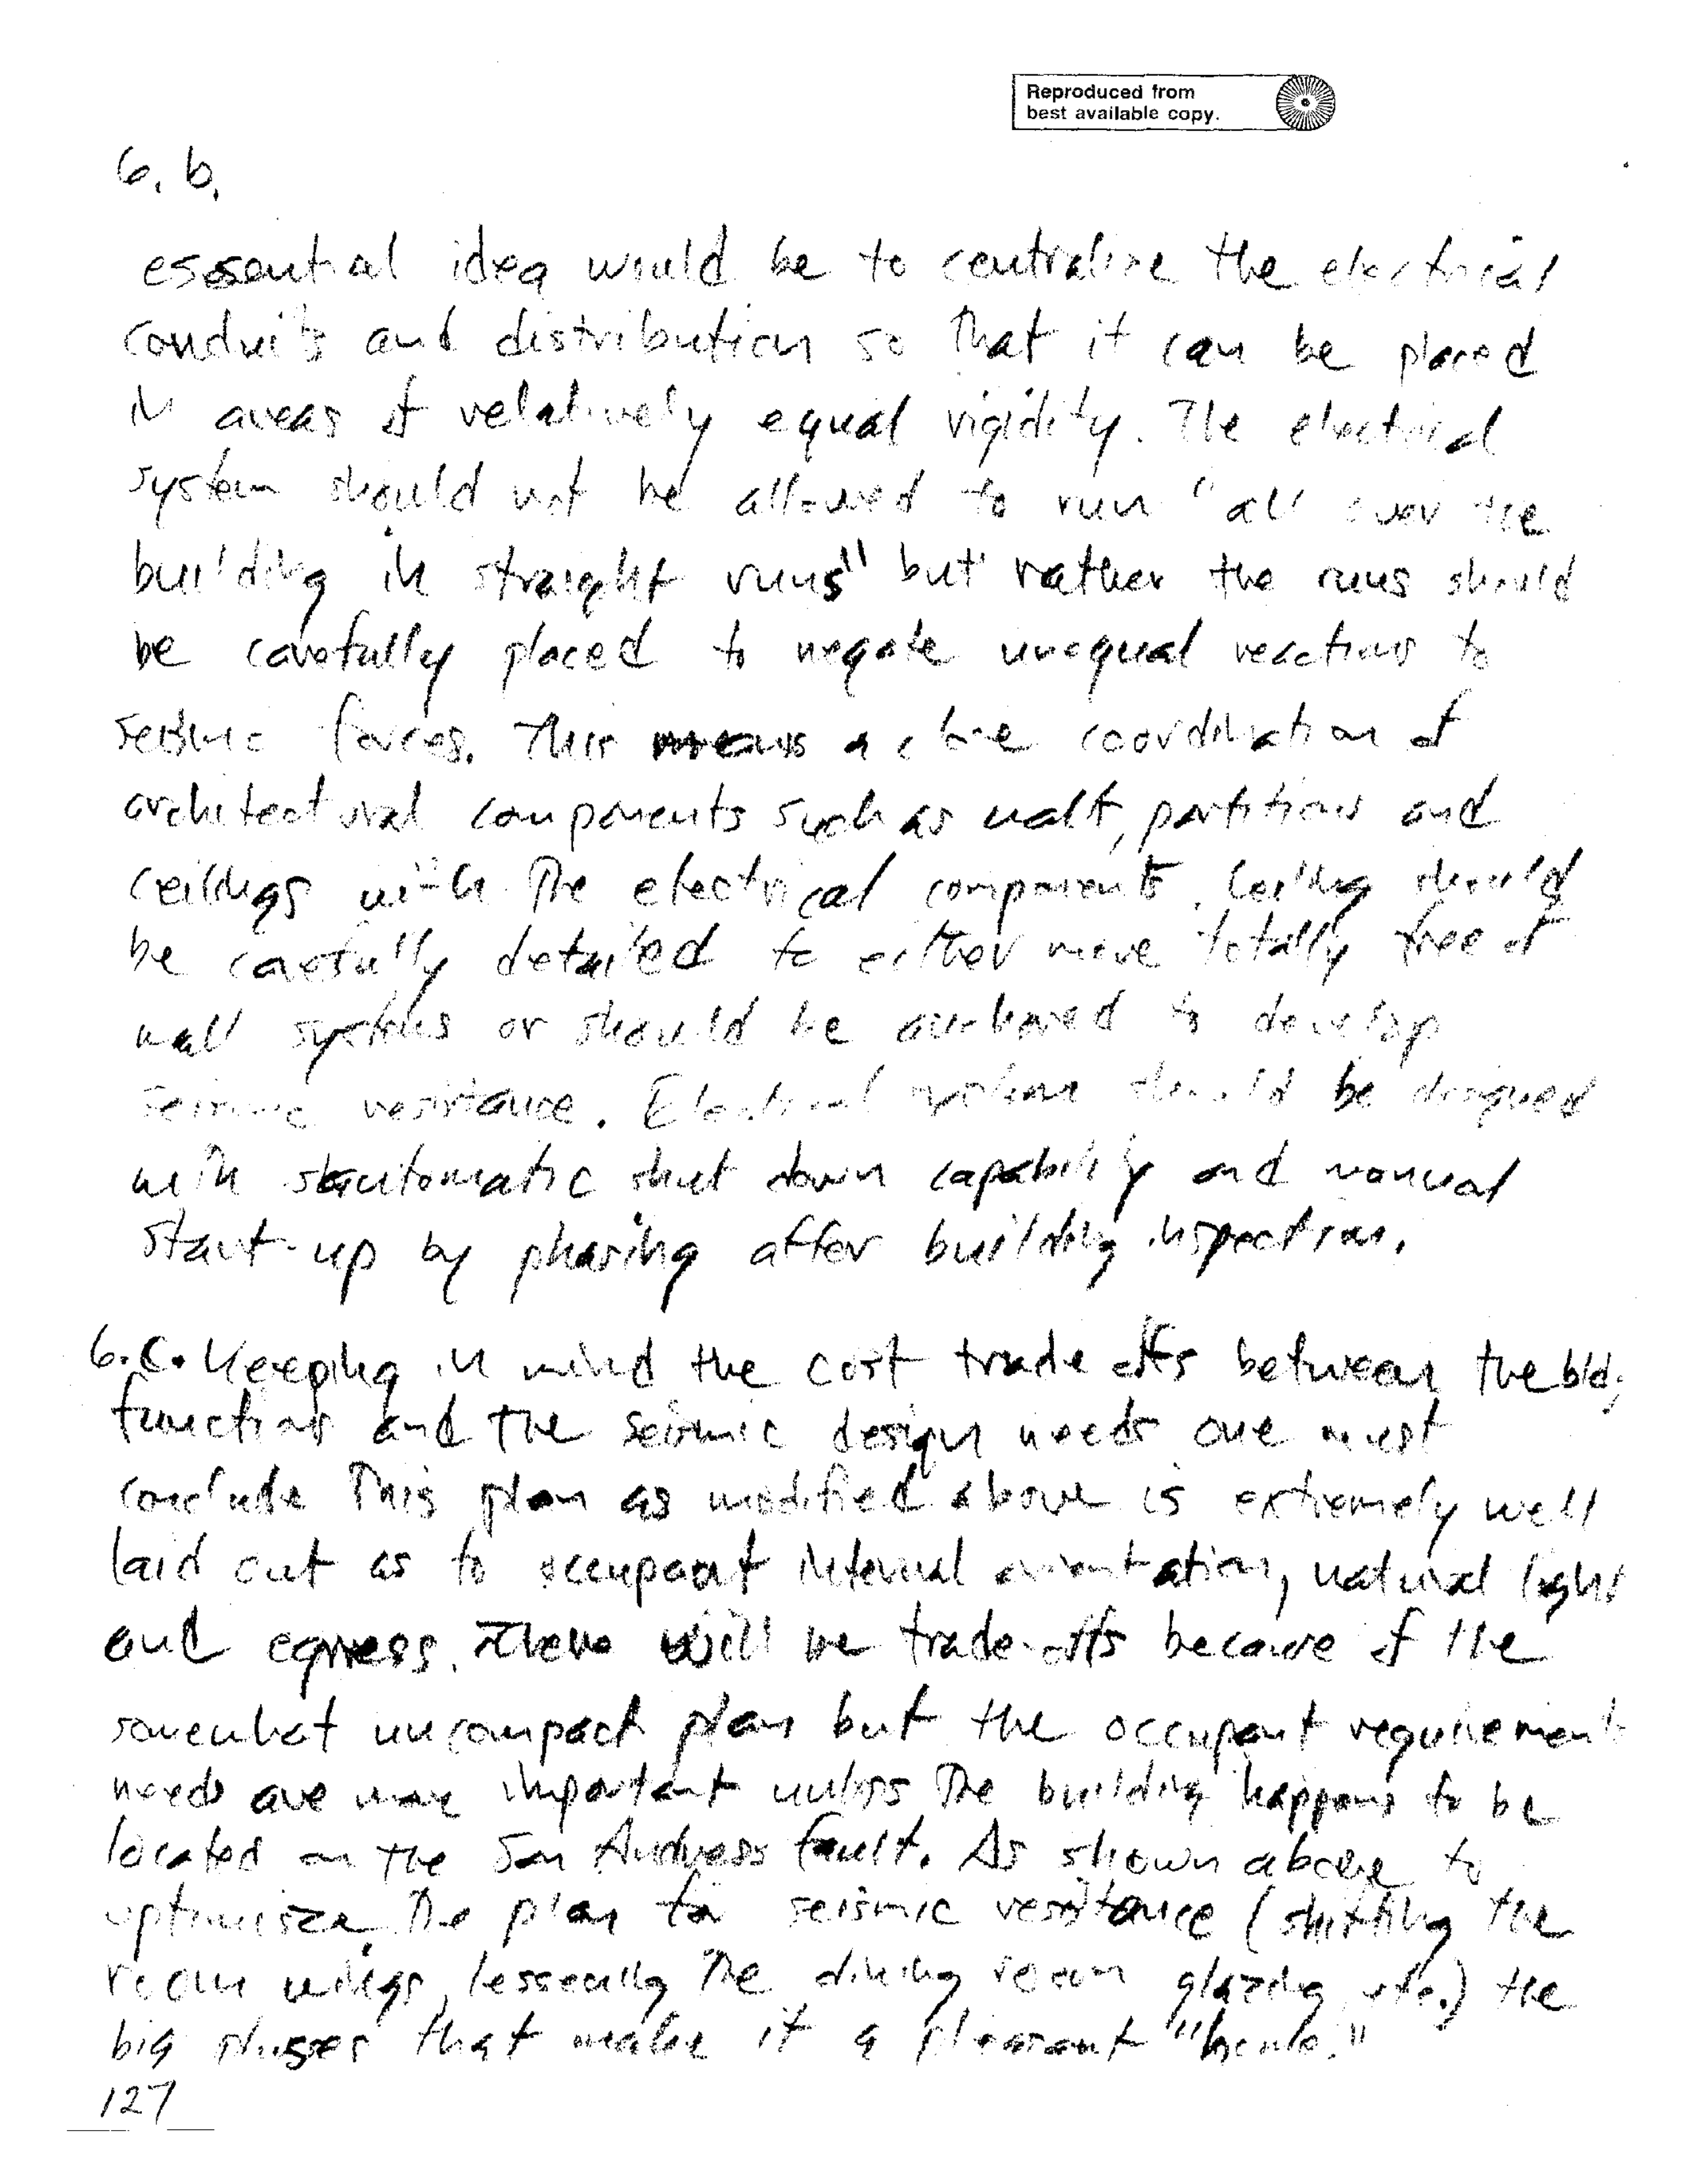 Reproduced from
best available copy.
6. b.
essential idea would be to centralize the electrical
conduits and distribution so that it can be placed
in areas of relatively equal rigidity. The electrical
system should not be allowed to run "all over the
building in straight runs" but rather the runs should
be carefully placed to negate unequal reactions to
seismic forces. This means a close coordination of
architectural components such as walls, partitions and
ceilings with the electrical components. Ceiling should
be carefully detailed to either move totally free of
wall systems or should be anchored to develop
seismic resistance. Electrical systems should be designed
with automatic shut down capability and manual
start-up by phasing after building inspection.
6.C. Keeping in mind the cost trade offs between the bldg
functions and the seismic design needs one must
conclude this plan as modified above is extremely well
laid out as to occupant internal orientation, natural light
and egress. There will be trade-offs because of the
somewhat uncompact plan but the occupant requirement
needs are more important unless the building happens to be
located on the San Andreas fault. As shown above to
optimize the plan for seismic resistance (shifting the
room wings, lessening the dining room glazing, etc.) the
big plusses that make it a pleasant "home."
127